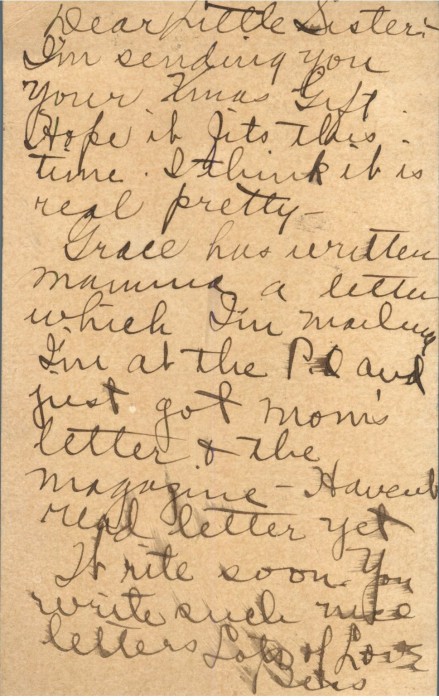 Dear Little Sister:-
I'm sending you
your Xmas Gift.
Hope it fits this
time. I think it is
real pretty-
Grace has written
mamma a letter
which I'm mailing
I'm at the P.O and
just got Mom's
letter & the
magazine - Havent
read letter yet
Write soon. You
write such nice
letters Lots of Love